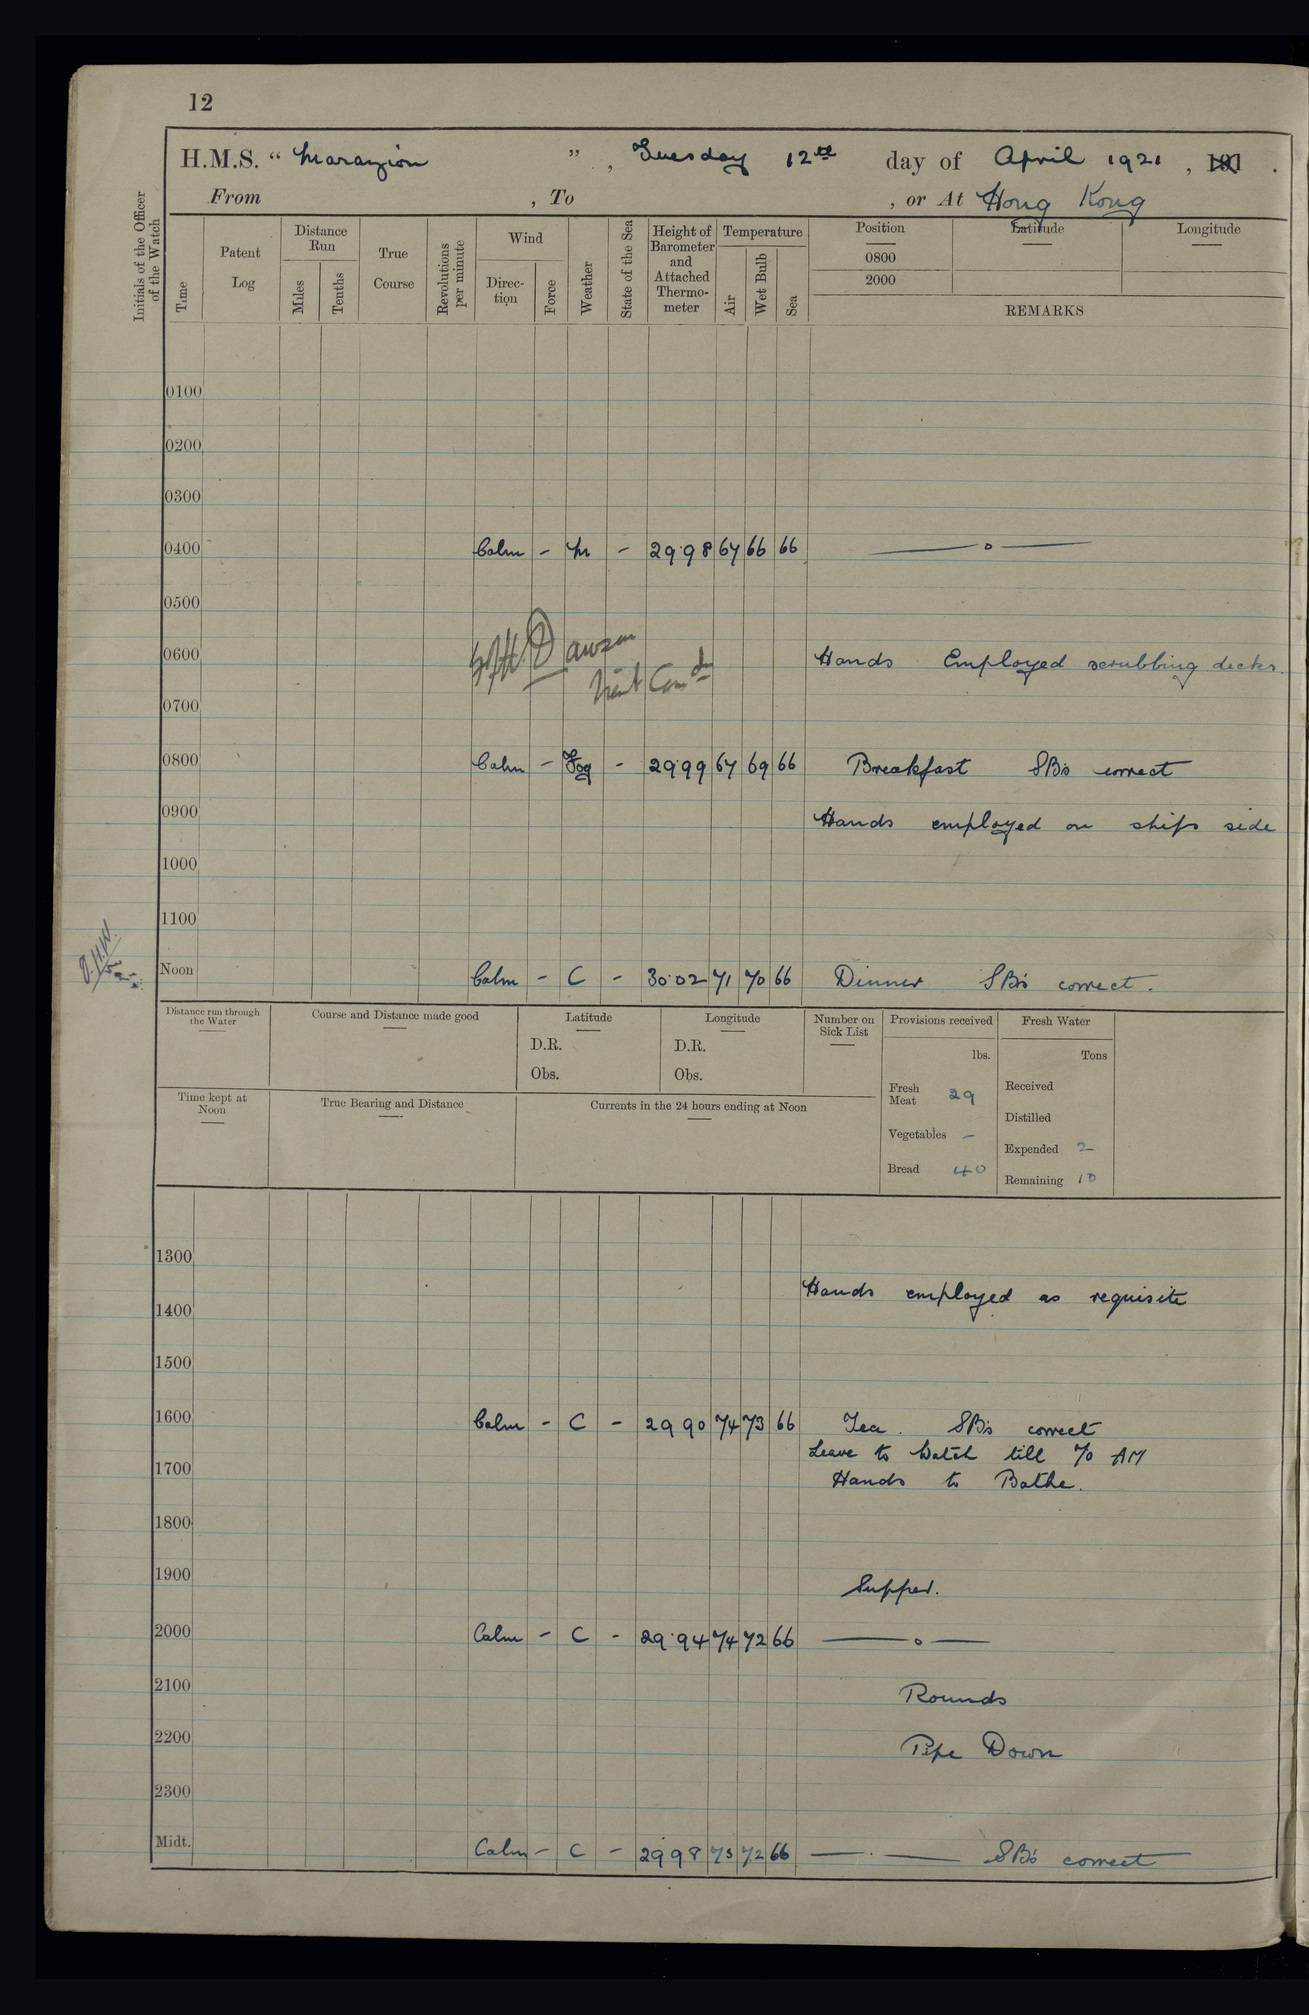 12
H.M.S. " Marazion " , Tuesday 12th day of April 1921 , .
From , To , or At Hong Kong
Initials of the Officer of the Watch
Time
Patent Log
Distance Run
Miles
Tenths
True Course
Revolutions per minute
Wind
Direction
Force
Weather
State of the Sea
Height of Barometer and Attached Thermometer
Temperature
Air
Wet Bulb
Sea
Position
0800
2000
Latitude
Longitude
REMARKS
0100
0200
0300
0400 Calm – m – 29.98 67 66 66 —o—
0500
0600 Hands Employed scrubbing decks.
Dawson
Lieut Comd
0700
0800 Calm – Fog – 29.99 67 69 66 Breakfast SBs correct
0900 Hands employed on ships side
1000
1100
Noon Calm – C – 30.02 71 70 66 Dinner SBs correct.
Distance run through the Water
Course and Distance made good
Latitude
D.R.
Obs.
Longitude
D.R.
Obs.
Number on Sick List
Provisions received
lbs.
Fresh Meat 29
Vegetables –
Bread 40
Fresh Water
Tons
Received
Distilled
Expended 2
Remaining 10
Time kept at Noon
True Bearing and Distance
Currents in the 24 hours ending at Noon
1300
Hands employed as requisite
1400
1500
1600 Calm – C – 29 90 74 73 66 Tea. SBs correct
Leave to Watch till 7/0 AM
1700 Hands to Bathe.
1800
1900 Supper.
2000 Calm – C – 29.94 74 72 66 —o—
2100 Rounds
2200 Pipe Down
2300
Midt. Calm – C – 29 98 73 72 66 — . — SBs correct